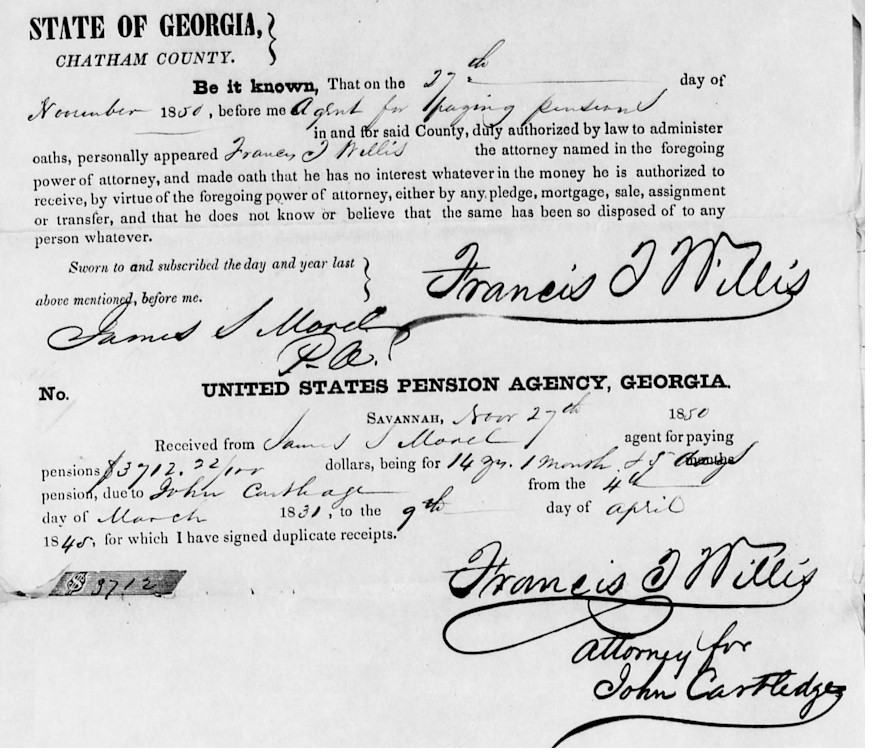 STATE OF GEORGIA,
CHATHAM COUNTY.
Be it known, That on the 27th day of
November 1850, before me Agent for paying pensions
in and for said County, duly authorized by law to administer
oaths, personally appeared Francis T Willis the attorney named in the foregoing
power of attorney, and made oath that he has no interest whatever in the money he is authorized to
receive, by virtue of the foregoing power of attorney, either by any pledge, mortgage, sale, assignment
or transfer, and that he does not know or believe that the same has been so disposed of to any
person whatever.
Sworn to and subscribed the day and year last
above mentioned, before me.
Francis T Willis
James S Morel
P. A.
No. UNITED STATES PENSION AGENCY, GEORGIA.
SAVANNAH, Novr 27th 1850
Received from James S Morel agent for paying
pensions $3712.22/100 dollars, being for 14 ys. 1 month & 5 days months
pension, due to John Cartledge from the 4th
day of March 1831, to the 9th day of April
1845, for which I have signed duplicate receipts.
Francis T Willis
3712
attorney for
John Cartledge